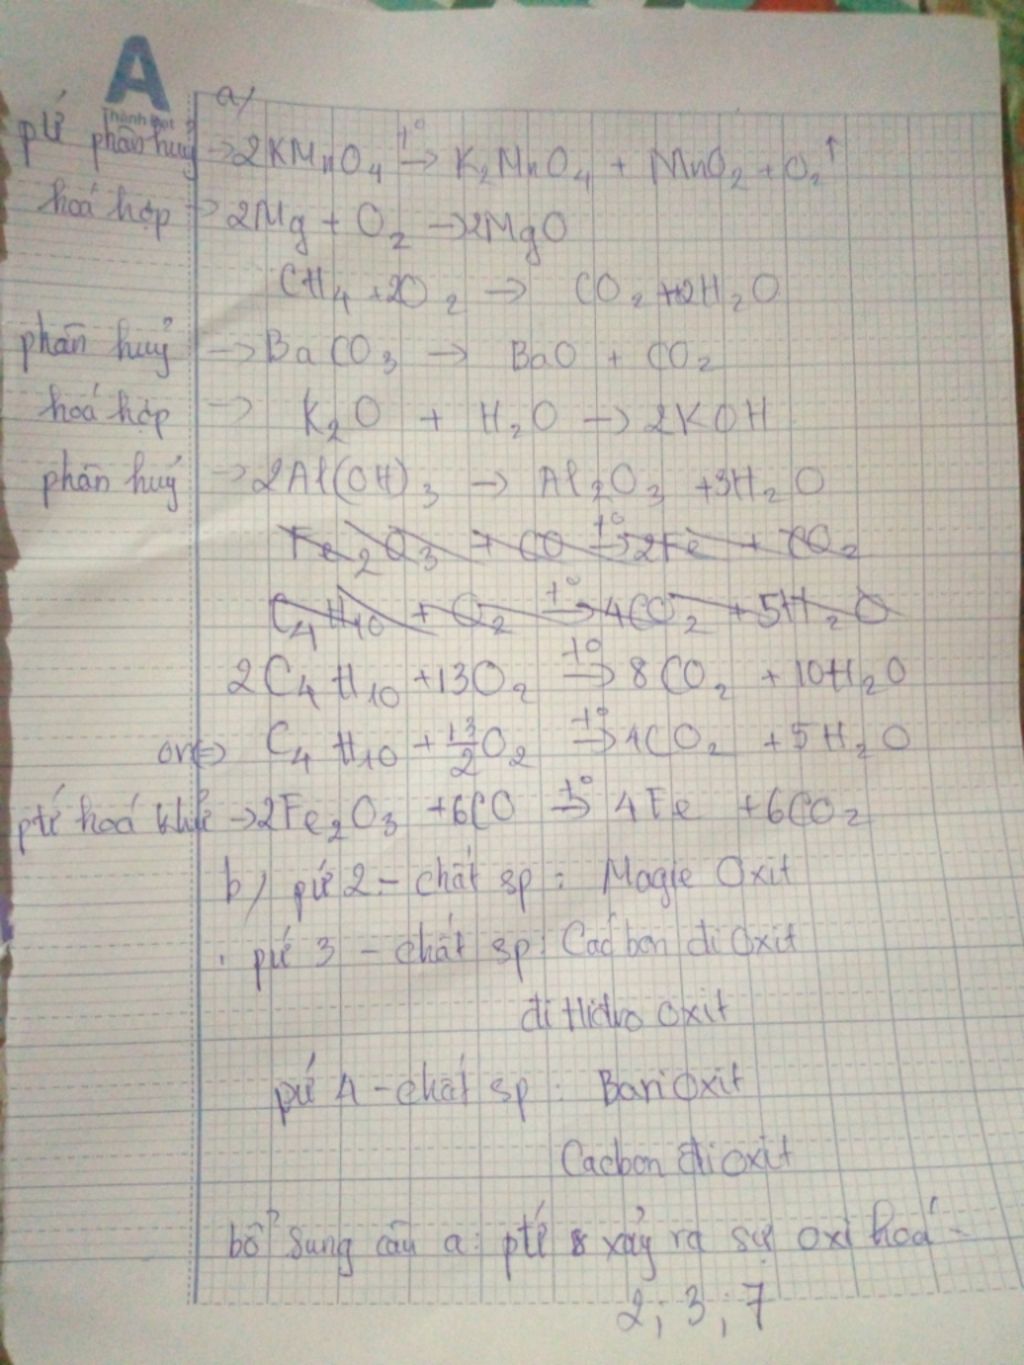 A
Thành Đạt
a)
pứ phân huỷ → 2KMnO₄ t°→ K₂MnO₄ + MnO₂ + O₂↑
hoá hợp → 2Mg + O₂ → 2MgO
CH₄ + 2O₂ → CO₂ + 2H₂O
phân huỷ → BaCO₃ → BaO + CO₂
hoá hợp → K₂O + H₂O → 2KOH
phân huỷ → 2Al(OH)₃ → Al₂O₃ + 3H₂O
Fe₂O₃ + CO t°→ 2Fe + CO₂
C₄H₁₀ + O₂ t°→ 4CO₂ + 5H₂O
2C₄H₁₀ + 13O₂ t°→ 8CO₂ + 10H₂O
or ⇔ C₄H₁₀ + 13/2 O₂ t°→ 4CO₂ + 5H₂O
ptế hoá khử → 2Fe₂O₃ + 6CO t°→ 4Fe + 6CO₂
b) pứ 2 - chất sp : Magie Oxit
pứ 3 - chất sp : Cacbon đi Oxit
đi Hidro oxit
pứ 4 - chất sp : Bari Oxit
Cacbon đi oxit
bổ sung câu a : xảy ra sự oxi hoá -
2 ; 3 ; 7